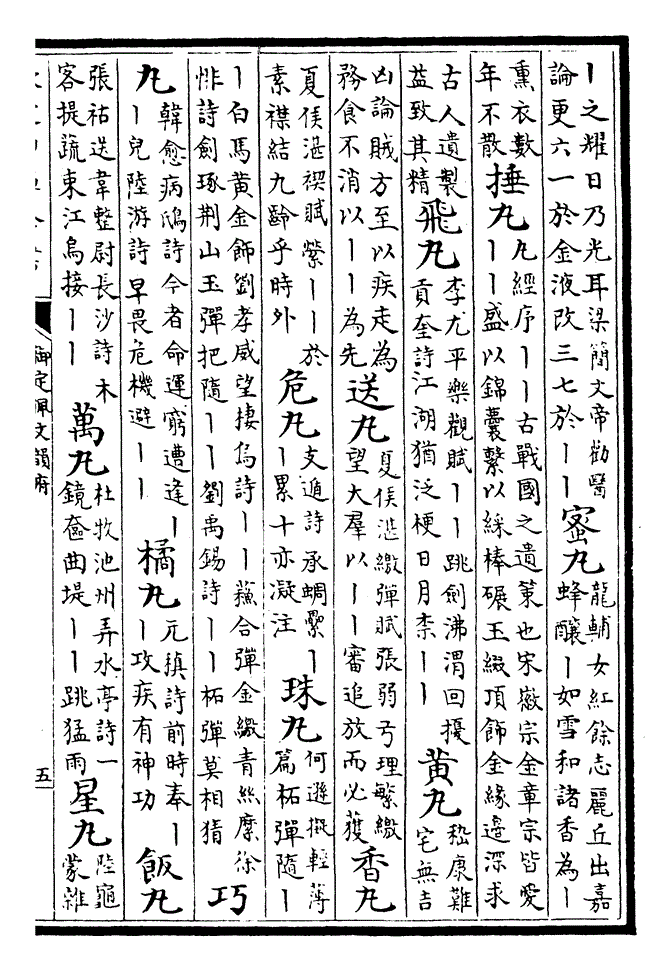 丨之耀日乃光耳梁簡文帝勸醫
論更六一於金液改三七於丨丨
蜜丸
龍輔女紅餘志麗丘出嘉
蜂釀丨如雪和諸香為丨
熏衣數
年不散
捶丸
丸經序丨丨古戰國之遺策也宋徽宗金章宗皆愛
丨丨盛以錦囊繫以綵棒碾玉綴頂飾金緣邊深求
古人遺製
益致其精
飛丸
李尤平樂觀賦丨丨跳劍沸渭回擾
貢奎詩江湖猶泛梗日月柰丨丨
黃丸
嵇康難
宅無吉
凶論賊方至以疾走為
務食不消以丨丨為先
送丸
夏侯湛繳彈賦張弱弓理繁繳
望大羣以丨丨審追放而必獲
香丸
夏侯湛禊賦縈丨丨於
素襟結九齡乎時外
危丸
支遁詩承蜩纍丨
丨累十亦凝注
珠丸
何遜擬輕薄
篇柘彈隨丨
丨白馬黃金飾劉孝威望棲烏詩丨丨蘇合彈金繳青絲縻徐
悱詩劍琢荆山玉彈把隨丨丨劉禹錫詩丨丨柘彈莫相猜
巧
丸
韓愈病鴟詩今者命運窮遭逢丨
丨兒陸游詩早畏危機避丨丨
橘丸
元稹詩前時奉丨
丨攻疾有神功
飯丸
張祜送韋整尉長沙詩木
客提蔬束江烏接丨丨
萬丸
杜牧池州弄水亭詩一
鏡奩曲堤丨丨跳猛雨
星丸
陸龜
蒙雜
御定佩文韻府
五